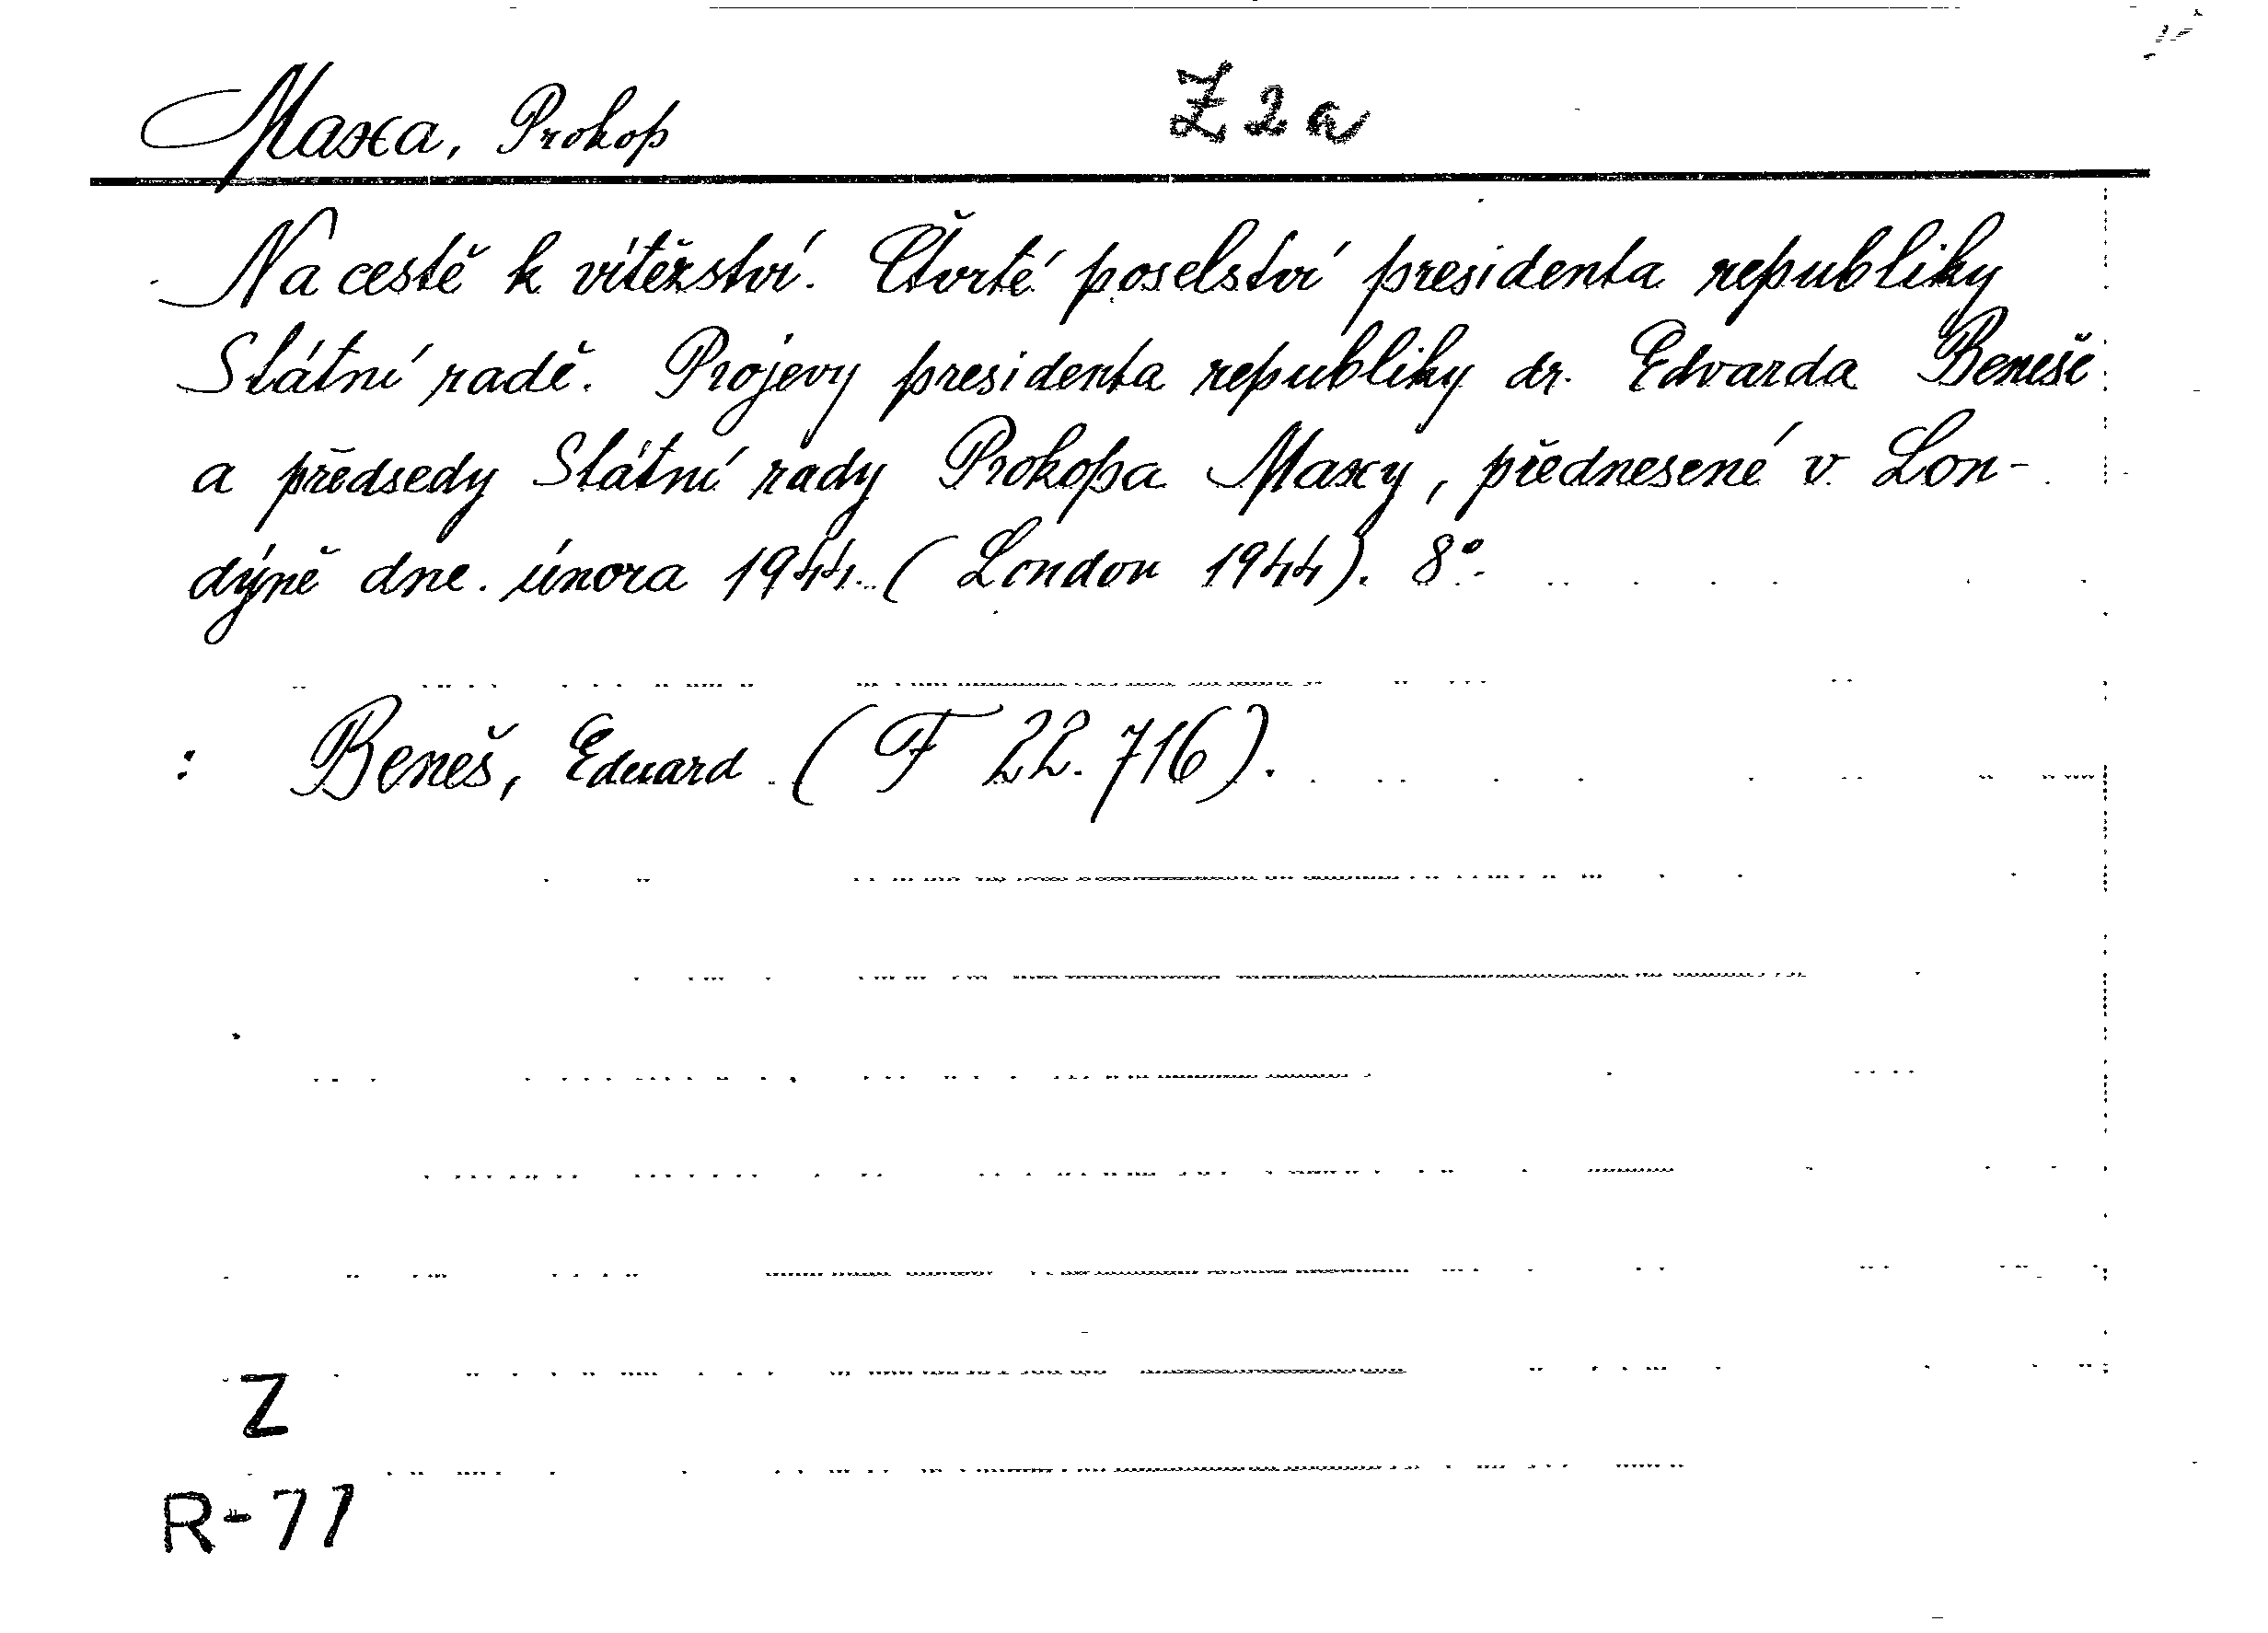 Maxa, Prokop Z 2 a
Na cestě k vítězství. Čtvrté poselství presidenta republiky
Státní radě. Projevy presidenta republiky dr. Edvarda Beneše
a předsedy Státní rady Prokopa Maxy, přednesené v Lon-
dýně dne. února 1944. (London 1944). 8°.
: Beneš, Eduard (F 22.716).
Z
R-77